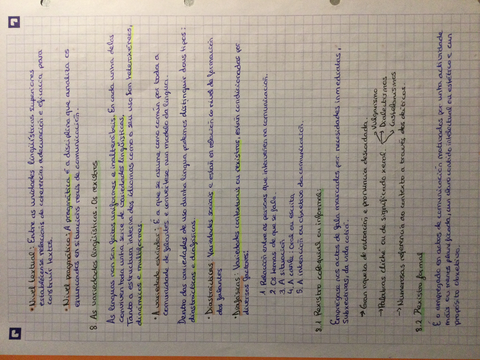 • Nivel textual: Entre as unidades lingüísticas superiores
establécense relacións de coherencia, adecuación e eficacia para
construír textos.
• Nivel pragmático: A pragmática é a disciplina que analiza os
enunciados en situacións reais de comunicación.
8. As variedades lingüísticas. Os rexistros
As linguas non se falan uniformes e inalterables. En cada unha delas
conviven toda unha serie de variedades lingüísticas.
Tanto a estrutura interna dos idiomas como o seu uso son heteroxéneos,
dinámicos e multiformes.
• A variedade estándar: É a que se asume como común por toda a
comunidade de falantes e convértese nun modelo da lingua.
Dentro das variedades de uso dunha lingua podemos distinguir dous tipos:
diastráticas e diafásicas
• Diastráticas: Variedades sociais e están en relación co nivel de formación
dos falantes
• Diafásicas: Variedades contextuais ou rexistros, están condicionadas por
diversos factores:
1. Relación entre as persoas que interveñen na comunicación.
2. Os temas de que se fala.
3. A situación.
4. A canle: oral ou escrita.
5. A intención ou obxectivo da comunicación.
8.1. Rexistro coloquial ou informal
Emprégase en actos de fala marcados por necesidades inmediatas,
"subsistencias da vida cotiá"
→ Gran rapidez de elocución e pronuncia descoidada
→ Palabras clichés ou de significado xeral
→ Vulgarismos
→ Dialectalismos
→ Castelanismos
→ Numerosas referencias ao contexto a través dos deícticos.
8.2. Rexistro formal
É o empregado en actos de comunicación motivados por unha actividade
máis ou menos planificada, cun alto contido intelectual ou estético e cun
propósito checativo.